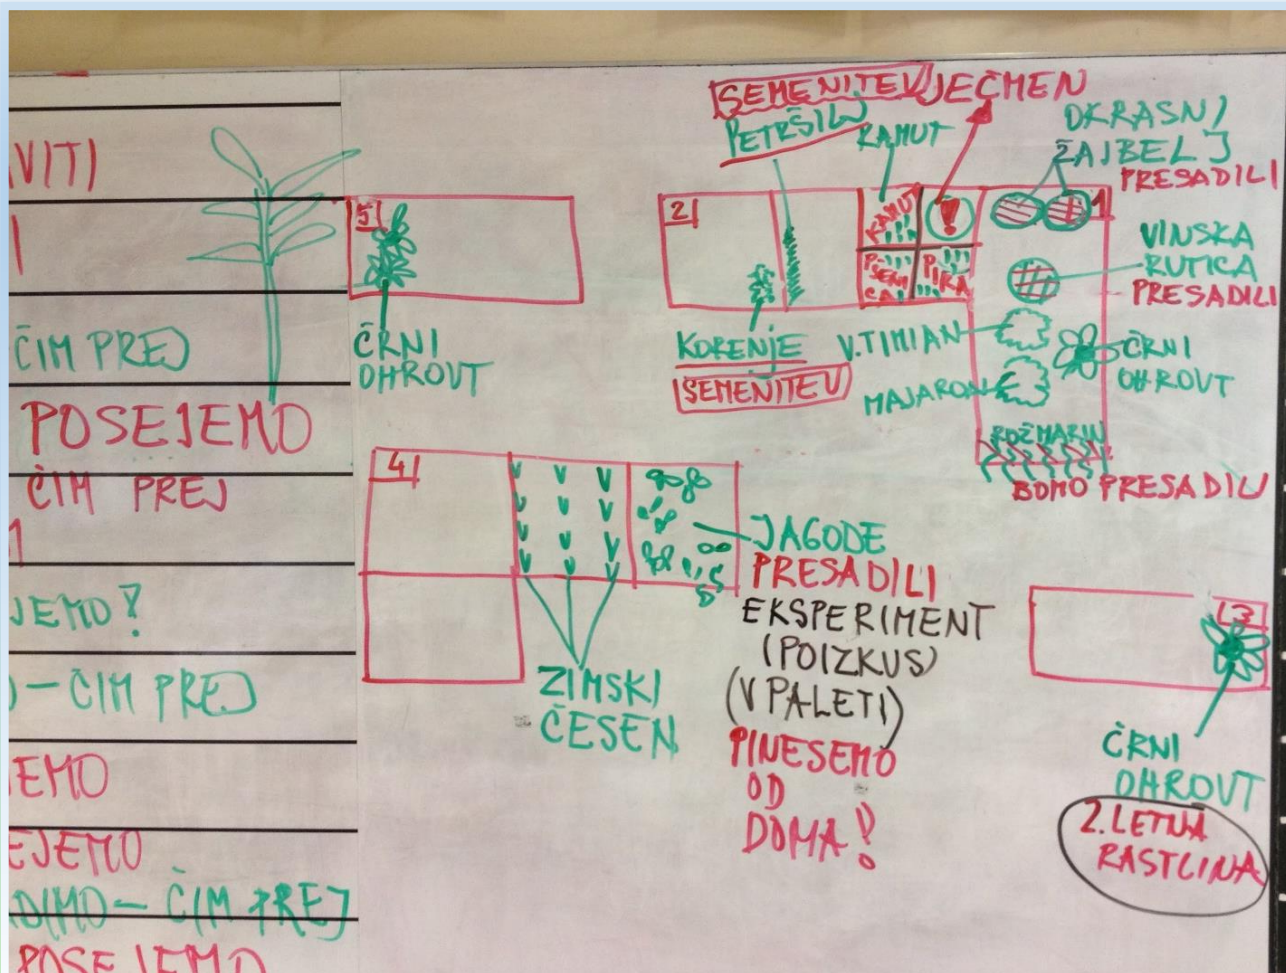 VITI
ČIM PREJ
POSEJEMO
ČIM PREJ
JEMO?
) – ČIM PREJ
JEMO
EJEMO
DIMO – ČIM PREJ
POSEJEMO
5
ČRNI
OHROVT
SEMENITEV
PETRŠILJ
JEČMEN
KAMUT
OKRASNI
ŽAJBELJ
PRESADILI
2
KAMUT
!
PŠENI
CA
PIRA
1
VINSKA
RUTICA
PRESADILI
KORENJE
SEMENITEV
V.TIMIAN
MAJARON
ČRNI
OHROVT
ROŽMARIN
BOMO PRESADILI
4
ZIMSKI
ČESEN
JAGODE
PRESADILI
EKSPERIMENT
(POIZKUS)
(V PALETI)
PINESEMO
OD
DOMA!
3
ČRNI
OHROVT
2. LETNA
RASTLINA